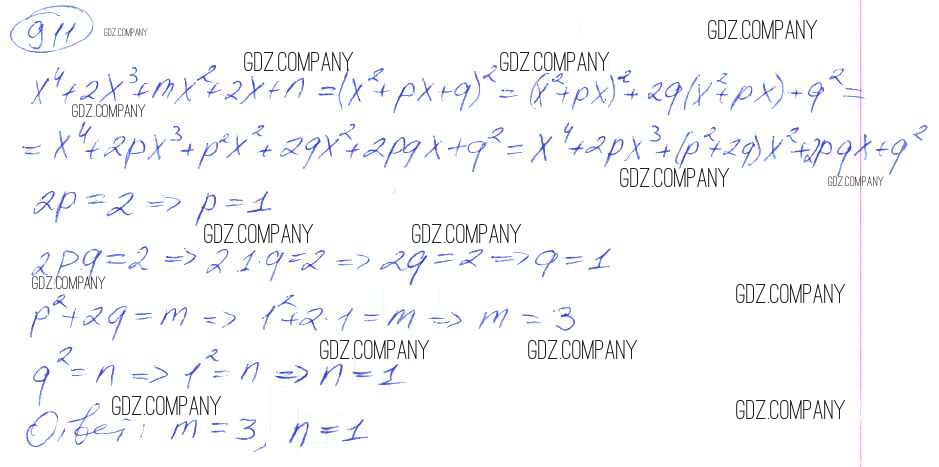 911 GDZ.COMPANY GDZ.COMPANY
GDZ.COMPANY GDZ.COMPANY
x⁴+2x³+mx²+2x+n =(x²+px+q)² = (x²+px)²+2q(x²+px)+q² =
GDZ.COMPANY
= x⁴+2px³+p²x²+2qx²+2pqx+q² = x⁴+2px³+(p²+2q)x²+2pqx+q²
GDZ.COMPANY GDZ.COMPANY
2p = 2 => p = 1
GDZ.COMPANY GDZ.COMPANY
2p·q = 2 => 2·1·q = 2 => 2q = 2 => q = 1
GDZ.COMPANY GDZ.COMPANY
p²+2q = m => 1²+2·1 = m => m = 3
GDZ.COMPANY GDZ.COMPANY
q² = n => 1² = n => n = 1
GDZ.COMPANY GDZ.COMPANY
Ответ: m = 3, n = 1